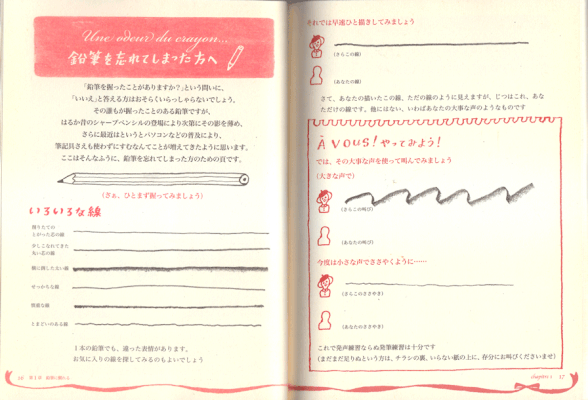 Une odeur du crayon...
鉛筆を忘れてしまった方へ
「鉛筆を握ったことがありますか?」という問いに、
「いいえ」と答える方はおそらくいらっしゃらないでしょう。
その誰もが握ったことのある鉛筆ですが、
はるか昔のシャープペンシルの登場により次第にその影を薄め、
さらに最近はというとパソコンなどの普及により、
筆記具さえも使わずにすむなんてことが増えてきたように思います。
ここはそんなふうに、鉛筆を忘れてしまった方のための頁です。
(さぁ、ひとまず握ってみましょう)
いろいろな線
削りたての
とがった芯の線
少しこなれてきた
丸い芯の線
横に倒した太い線
せっかちな線
慎重な線
とまどいのある線
1本の鉛筆でも、違った表情があります。
お気に入りの線を探してみるのもよいでしょう
16 第1章 鉛筆に触れる
それでは早速ひと描きしてみましょう
(さらこの線)
(あなたの線)
さて、あなたの描いたこの線、ただの線のように見えますが、じつはこれ、あな
ただけの線です。他にはない、いわばあなたの大事な声のようなものです
À vous! やってみよう!
では、その大事な声を使って叫んでみましょう
(大きな声で)
(さらこの叫び)
(あなたの叫び)
今度は小さな声でささやくように……
(さらこのささやき)
(あなたのささやき)
これで発声練習ならぬ発筆練習は十分です
(まだまだ足りぬという方は、チラシの裏、いらない紙の上に、存分にお叫びくださいませ)
chapitre 1 17